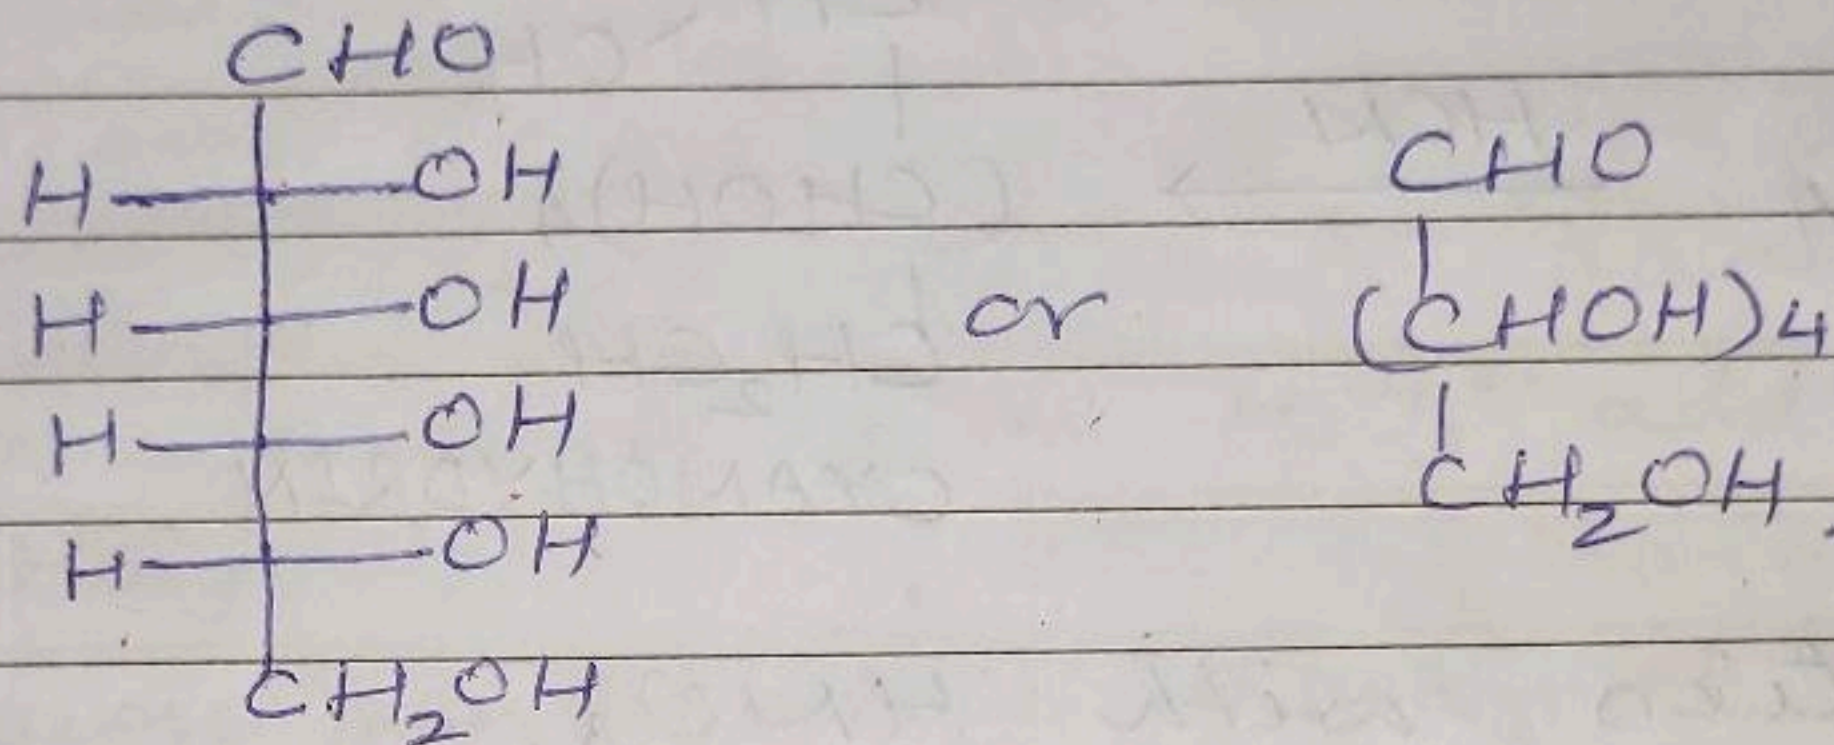 CHO
H OH
H OH
H OH
H OH
CH2OH
or
CHO
(CHOH)4
CH2OH.